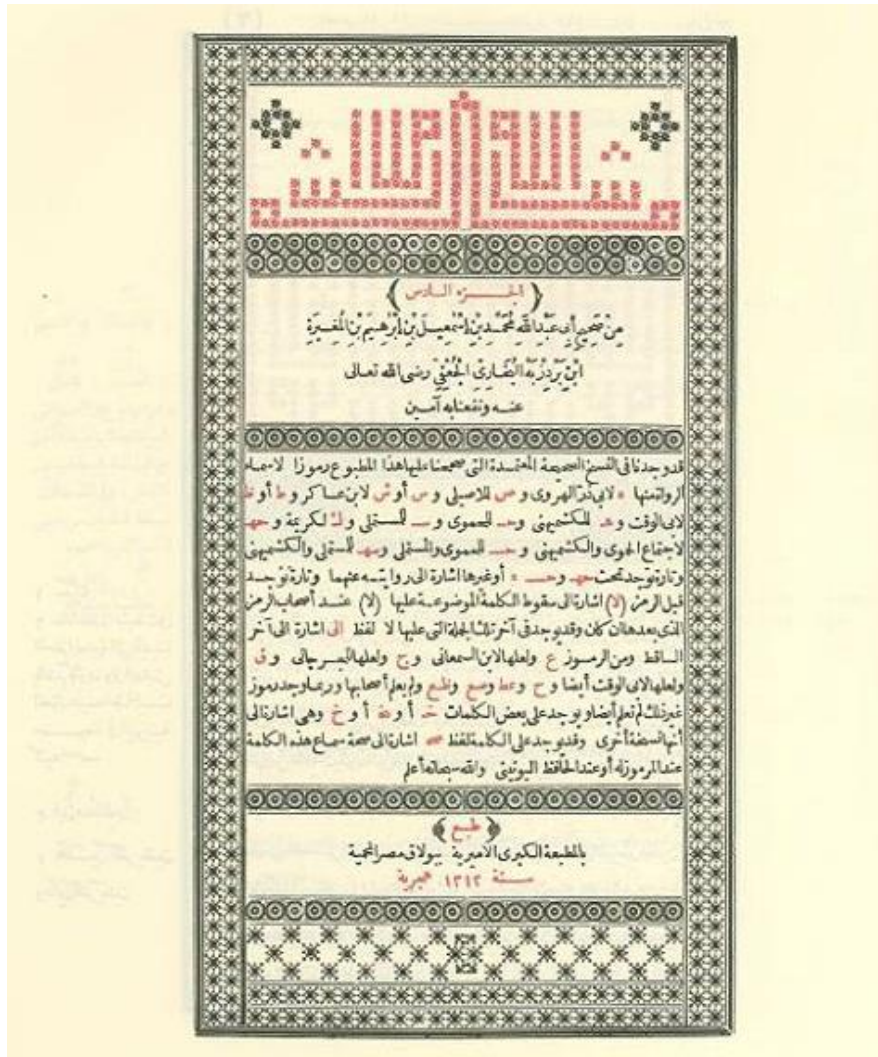 ما شاء الله
الجزء السادس
مِنْ صَحِيحِ أَبِي عَبْدِ اللهِ مُحَمَّدِ بْنِ إِسْمٰعِيلَ بْنِ إِبْرٰهِيمَ بْنِ الْمُغِيرَةِ
ابْنِ بَرْدِزْبَهْ الْبُخَارِيِّ الْجُعْفِيِّ رضى الله تعالى
عنه ونفعنا به آمين
قد وجدنا فى النسخ الصحيحة المعتمدة التى صححنا عليها هذا المطبوع رموزا لاسماء
الرواة منها ه لابى ذر الهروى و ص للاصيلى و س أو ش لابن عساكر و ط أو ظ
لابى الوقت و هـ للكشميهنى و حـ للحموى و سـ للمستملى و ك لكريمة و حهـ
لاجتماع الحموى والكشميهنى و حسـ للحموى والمستملى و سهـ للمستملى والكشميهنى
وتارة توجد تحت حهـ و حسـ ه أو غيرها اشارة الى روايته عنهما وتارة توجد
قبل الرمز (لا) اشارة الى سقوط الكلمة الموضوعة عليها (لا) عند أصحاب الرمز
الذى بعدها ان كان وقد يوجد فى آخر تلك الجملة التى عليها لا لفظ الى اشارة الى آخر
الساقط ومن الرموز ع ولعلها لابن السمعانى و ج ولعلها للجرجانى و ق
ولعلها لابى الوقت أيضا و ح و عط و صع و ظع ولم يعلم أصحابها وربما وجد رموز
غير تلك لم تعلم أيضا ويوجد على بعض الكلمات خـ أو خه أو خ وهى اشارة الى
أنها نسخة أخرى وقد يوجد على الكلمة لفظ صح اشارة الى صحة سماع هذه الكلمة
عند المرموز له أو عند الحافظ اليونينى والله سبحانه أعلم
طبع
بالمطبعة الكبرى الاميرية ببولاق مصر المحمية
سنة ١٣١٢ هجرية